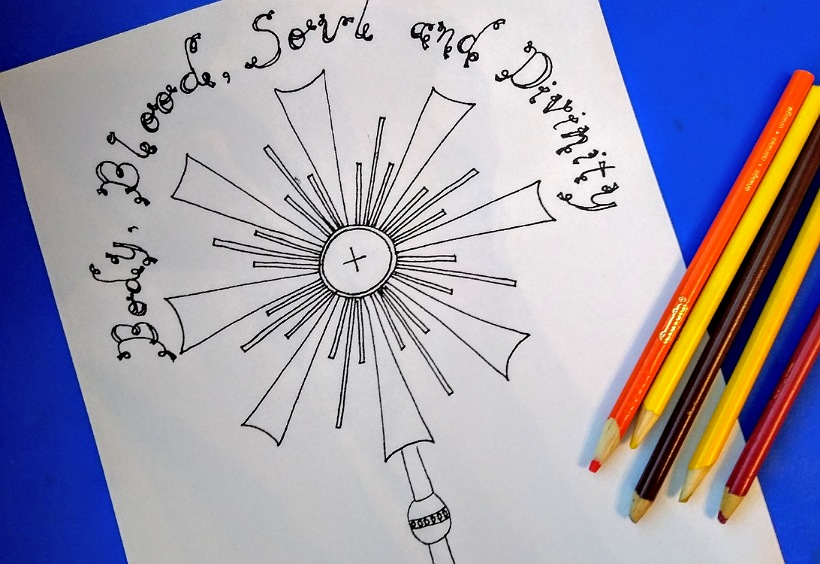 Body, Blood, Soul and Divinity